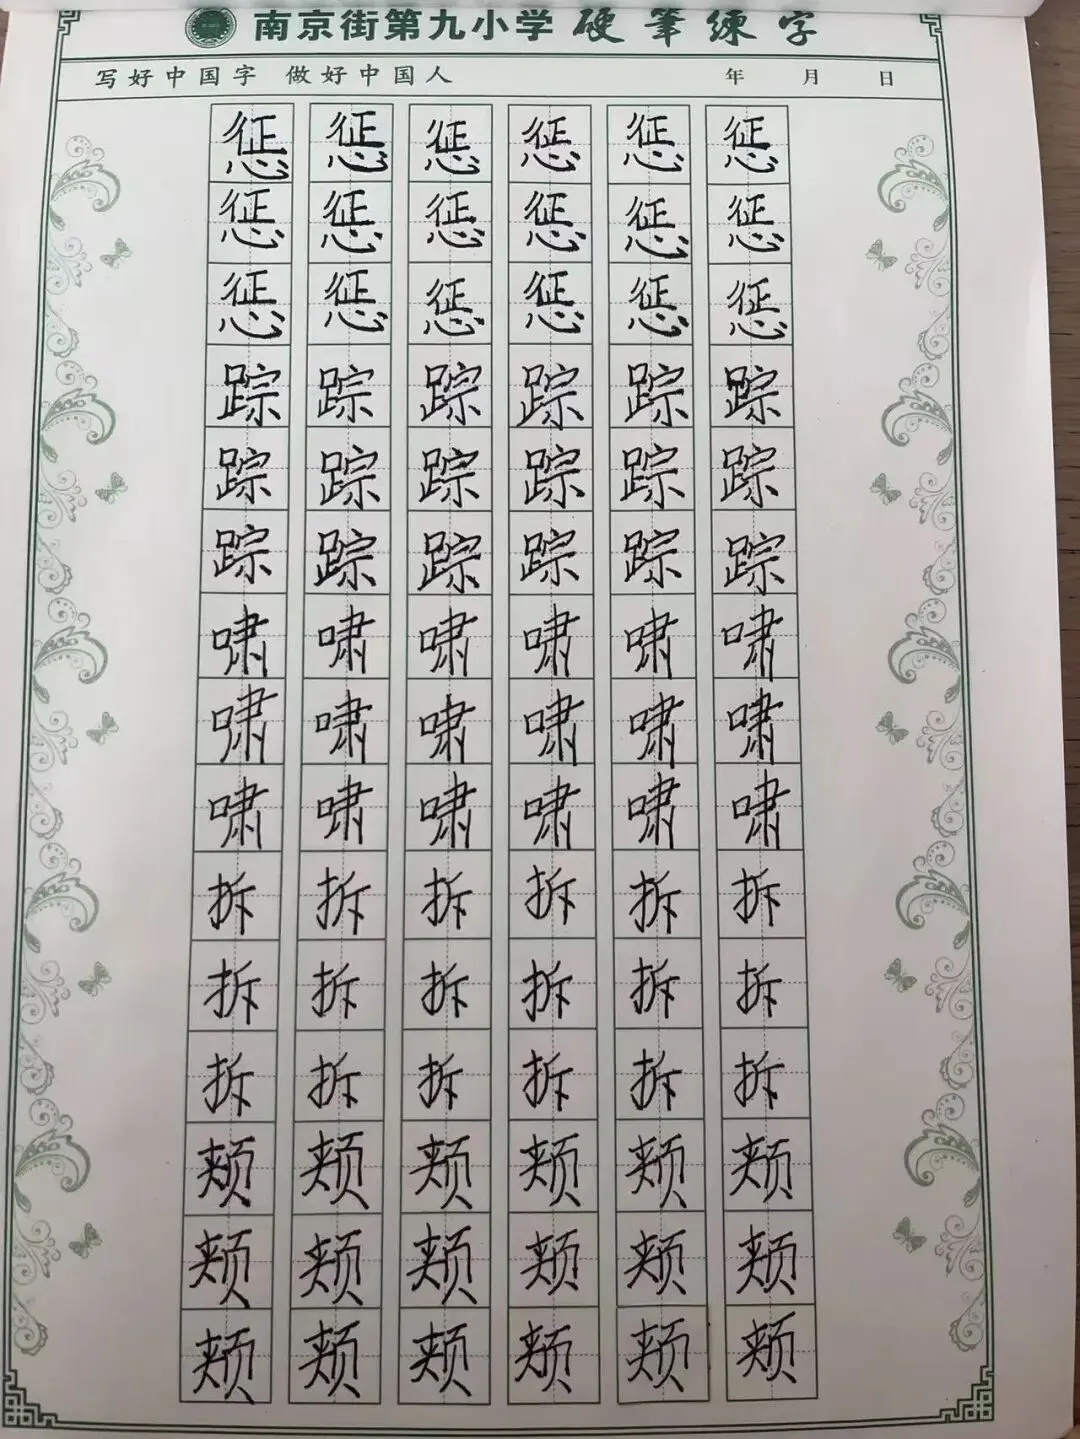 南京街第九小学 硬筆練字
写好中国字 做好中国人 年 月 日
惩 惩 惩 惩 惩 惩
惩 惩 惩 惩 惩 惩
惩 惩 惩 惩 惩 惩
踪 踪 踪 踪 踪 踪
踪 踪 踪 踪 踪 踪
踪 踪 踪 踪 踪 踪
啸 啸 啸 啸 啸 啸
啸 啸 啸 啸 啸 啸
啸 啸 啸 啸 啸 啸
拆 拆 拆 拆 拆 拆
拆 拆 拆 拆 拆 拆
拆 拆 拆 拆 拆 拆
颊 颊 颊 颊 颊 颊
颊 颊 颊 颊 颊 颊
颊 颊 颊 颊 颊 颊